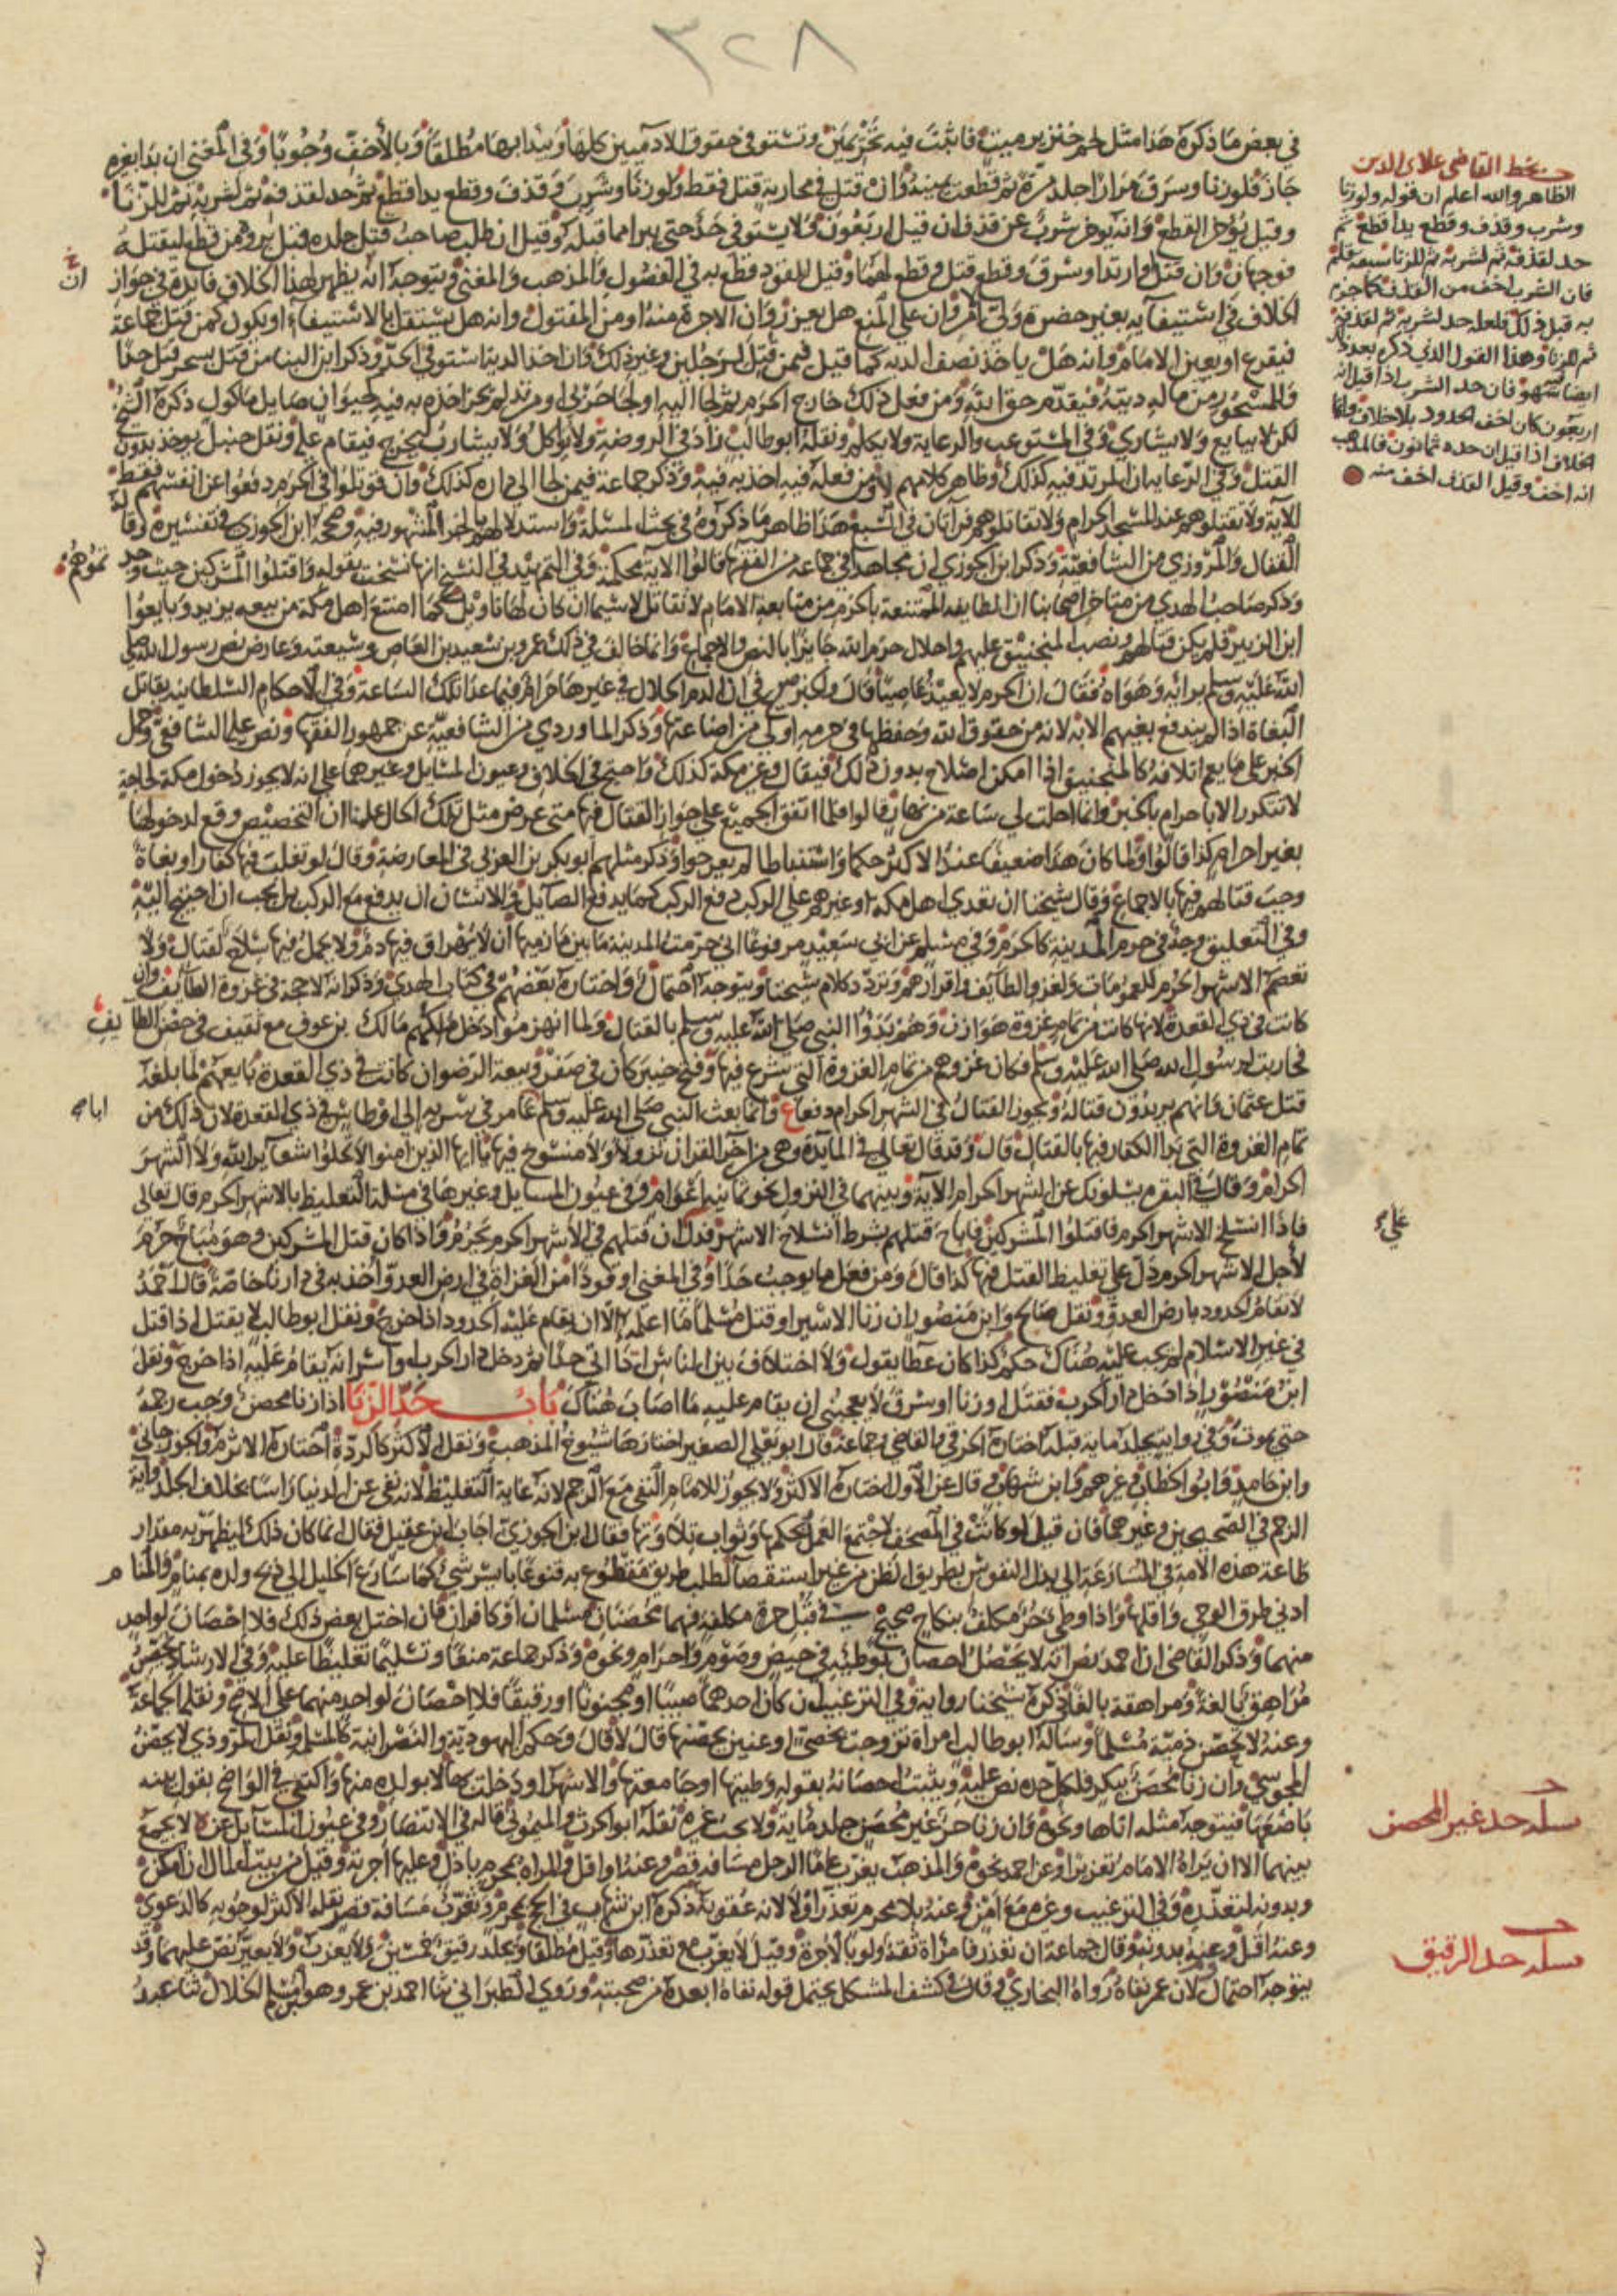 ٣٢٨
في بعض ما ذكره هذا مثل لحم خنزير ميت فاثبت فيه تحريمين وتستوفى حقوق الادميين كلها ويبدا بها مطلقا وبالأخف وجوبا وفي المغني ان بدا بغيره
جاز فلو زنا وسرق مرارا جلد مرة ثم قطعت يمينه وان قتل في محاربة قتل فقط ولو زنا وشرب وقذف وقطع يدا قطع ثم حد لقذفه ثم لشربه ثم للزنا
وقيل يؤخر القطع وانه يؤخر شرب عن قذف ان قيل اربعون ولا يستوفى حد حتى يبرا مما قبله وقيل ان طلب صاحب قتل جلده قبل برءه من قطع ليقتله
فوجهان وان قتل وارتد او سرق وقطع قتل وقطع لهما وقيل للقود قطع به في الفصول والمذهب والمغني ويتوجه انه يظهر لهذا الخلاف فايدة في جواز
الخلاف في استيفآيه بغير حضرة ولي امر وان على المنع هل يعزر وان الاجرة منه او من المقتول وانه هل يستقل بالاستيفآء او يكون كمن قتل جماعة
فيقرع او يعين الامام وانه هل ياخذ نصف الدية كما قيل فيمن قتل لرجلين وغير ذلك وان اخذ الدية استوفي الحد وذكر ابن البنا من قتل بسحر قتل حدا
وللمسحور من ماله ديته فيقدم حق الله ومن فعل ذلك خارج الحرم ثم لجا اليه او لجا حربي او مرتد لم يجز اخذه به فيه كحيوان صايل ماكول ذكره الشيخ
لكن لا يبايع ولا يشارى وفي المستوعب والرعاية ولا يكلم ونقله ابو طالب زاد في الروضة ولا يواكل ولا يشارب ليخرج فيقام عليه ونقل حنبل يوخذ بدون
القتل وفي الرعاية ان المرتد فيه كذلك وظاهر كلامهم لا ومن فعله فيه اخذ به فيه وذكر جماعة فيمن لجا الى داره كذلك وان قوتلوا في الحرم دفعوا عن انفسهم فقط
للآية ولا تقتلوهم عند المسجد الحرام ولا تقاتلوهم قرآتان في السبع هذا ظاهر ما ذكروه في بحث المسئلة واستدلالهم بالخبر المشهور فيه وصححه ابن الجوزي في تفسيره وقاله
القفال والمروزي من الشافعية وذكر ابن الجوزي ان مجاهدا في جماعة من الفقها قالوا الآية محكمة وفي التمهيد في النسخ انها نسخت بقوله واقتلوا المشركين حيث وجدتموهم
وذكر صاحب الهدي من متاخري اصحابنا ان الطايفة الممتنعة بالحرم من متابعة الامام لا تقاتل لا سيما ان كان لها تاويل كما امتنع اهل مكة من بيعه يزيد وبايعوا
ابن الزبير فلم يكن قتالهم ونصب المنجنيق عليهم واحلال حرم الله جايزا بالنص والاجماع وانما خالف في ذلك عمرو بن سعيد بن العاص وشيعته وعارض نص رسول الله صلى
الله عليه وسلم برايه وهواه فقال ان الحرم لا يعيذ عاصيا قال والخبر صريح في ان الدم الحلال في غيرها حرام فيها عدا تلك الساعة وفي الاحكام السلطانية يقاتل
البغاة اذا لم يندفع بغيهم الا به لانه من حقوق الله وحفظها في حرمه اولى من اضاعتها وذكره الماوردي من الشافعية عن جمهور الفقها ونص عليه الشافعي وحمل
الخبر على ما يعم اتلافه كالمنجنيق اذا امكن اصلاح بدون ذلك فيقال وغير مكة كذلك واحتج في الخلاف وعيون المسايل وغيرهما على انه لا يجوز دخول مكة لحاجة
لا تتكرر الا باحرام بالخبر وانما احلت لي ساعة من نهار قالوا فلما اتفق الجميع على جواز القتال فيها متى عرض مثل تلك الحال علمنا ان التخصيص وقع لدخولها
بغير احرام كذا قالوا ولما كان هذا ضعيفا عند الاكثر حكما واستنباطا لم يعرجوا وذكر مثلهم ابو بكر بن العربي في المعارضة وقال لو تغلب فيها كفار او بغاة
وجب قتالهم فيها بالاجماع وقال شيخنا ان تعدى اهل مكة او غيرهم على الركب دفع الركب كما يدفع الصآيل وللانسان ان يدفع مع الركب بل يجب ان احتيج اليه
وفي التعليق وجه في حرم المدينة كالحرم وفي مسلم عن ابي سعيد مرفوعا اني حرمت المدينة ما بين مازميها ان لا يهراق فيها دم ولا يحمل فيها سلاح لقتال ولا
تعصم الاشهر الحرم للعمومات ولغزو الطآيف واقرارهم وتردد كلام شيخنا ويتوجه احتمال واختاره بعضهم في كتاب الهدي وذكر انه لا حجة في غزوة الطآيف وان
كانت في ذي القعدة لانها كانت من تمام غزوة هوازن وهم بدوا النبي صلى الله عليه وسلم بالقتال ولما انهزموا دخل ملكهم مالك بن عوف مع ثقيف في حصن الطايف
فحاربت رسول الله صلى الله عليه وسلم فكان غزوهم من تمام الغزوة التي شرع فيها وفتح خيبر كان في صفر وبيعة الرضوان كانت في ذي القعدة بايعهم لما بلغه
قتل عثمان وانهم يريدون قتاله ويجوز القتال في الشهر الحرام دفعا ع وانما بعث النبي صلى الله عليه وسلم ابا عامر في سرية إلى اوطاس في ذي القعدة لان ذلك من
تمام الغزوة التي بدا الكفار فيها بالقتال قال وقد قال تعالى في المايدة وهي من اخر القران نزولا ولا منسوخ فيها يا ايها الذين امنوا لا تحلوا شعآير الله ولا الشهر
الحرام وقال في البقرة يسلونك عن الشهر الحرام الآية وبينهما في النزول نحو ثمانية اعوام وفي عيون المسايل وغيرها في مسلة التغليظ بالاشهر الحرم قال تعالى
فاذا انسلخ الاشهر الحرم فاقتلوا المشركين فاباح قتلهم بشرط انسلاخ الاشهر فدل ان قتلهم في الأشهر الحرم محرم فاذا كان قتل المشركين وهو مباح حرم
لأجل الاشهر الحرم دل على تغليظ القتل فيها كذا قال ومن فعل ما يوجب حدا وفي المغني او قودا من الغزاة في ارض العدو اخذ به في دارنا خاصة قال احمد
لا تقام الحدود بارض العدو ونقل صالح وابن منصور ان زنا الاسير او قتل مسلما ما اعلمه الا ان يقام عليه الحدود اذا خرج ونقل ابو طالب لا يقتل اذا قتل
في غير الاسلام لم يجب عليه هناك حكم كذا كان عطا يقول ولا اختلاف بين الناس اذا اتى حدا ثم دخل دار الحرب او اسر انه يقام عليه اذا خرج ونقل
ابن منصور اذا دخل دار الحرب فقتل او زنا او سرق لا يعجبني ان يقام عليه ما اصاب هناك باب حد الزنا اذا زنا محصن وجب رجمه
حتى يموت وفي رواية يجلد ماية قبله اختاره الخرقي والقاضي وجماعة قال ابو يعلى الصغير اختارها شيوخ المذهب ونقل الاكثر كالردة اختاره الاثرم والجوزجاني
وابن حامد وابو الخطاب وغيرهم وابن شهاب وقال عن الأول اختاره الاكثر ولا يجوز للامام النفي مع الرجم لانه غاية التغليظ لانه نفي عن الدنيا راسا بخلاف الجلد وآية
الرجم في الصحيحين وغيرهما فان قيل لو كانت في المصحف لاجتمع العمل بحكمها وثواب تلاوتها فقال ابن الجوزي اجاب ابن عقيل فقال انما كان ذلك ليظهر به مقدار
طاعة هذه الامة في المسارعة الى بذل النفوس بطريق الظن من غير استقصآ لطلب طريق مقطوع به قنوعا بايسر شيء كما سارع الخليل الى ذبح ولده بمنام والمنام
ادنى طرق الوحي واقلها واذا وطئ حر مكلف بنكاح صحيح في قبل حرة مكلفة فهما محصنان مسلمان او كافران فان اختل بعض ذلك فلا احصان لواحد
منهما وذكر القاضي ان احمد نص انه لا يحصل احصان بوطئه في حيض وصوم واحرام ونحوه وذكر جماعة منعا وتسليما تغليظا عليه وفي الارشاد يحصن
مراهق بالغة ومراهقة بالغا ذكره شيخنا رواية وفي الترغيب ان كان احدهما صبيا او مجنونا او رقيقا فلا احصان لواحد منهما على الاصح ونقله الجماعة
وعنه لا تحصن ذمية مسلما وساله ابو طالب امراة تزوجت بخصي او عنين يحصنها قال لا قال وحكم اليهودية والنصرانية كالمسلم ونقل المروذي لا يحصن
المجوسي وان زنا محصن ببكر فلكل حده نص عليه ويثبت احصانه بقوله وطيتها او جامعتها والاشهر او دخلت بها لا بولده منها واكتفى في الواضح بقول بينة
باضعها فيتوجه مثله اتاها ونحوه وان زنا حر غير محصن جلد ماية ولا يجب غيره نقله ابو الحرث والميموني قاله في الانتصار وفي عيون المسآيل عن لا يجمع
بينهما الا ان يراه الامام تعزيرا وعن احمد نحوه والمذهب يغرب عاما الرجل مسافة قصر وعنه او اقل والمراة بمحرم باذل وعليها اجرته وقيل من بيت المال ان امكن
وبدونه لتعذره وفي الترغيب وغيره مع امن وعنه بلا محرم تعذر اولا لانه عقوبة ذكره ابن شهاب في الحج بمحرم وتغرب مسافة قصر نقله الاكثر لوجوبه كالدعوى
وعنه اقل وعنه بدونه وقال جماعة ان تعذر فامراة ثقة ولو بالاجرة وقيل لا يغرب مع تعذرها وقيل مطلقا ويجلد رقيق خمسين ولا يغرب ولا يعير نص عليهما وقد
يتوجه احتمال لان عمر نفاه رواه البخاري وقال في كشف المشكل يحتمل قوله نفاه ابعده من صحبته وروى الطبراني ثنا احمد بن عمرو هو ابن مسلم الخلال ثنا عبد
بخط القاضي علاي الدين
الظاهر والله اعلم ان قوله ولو زنا
وشرب وقذف وقطع يدا قطع ثم
حد لقذفه ثم لشربه ثم للزنا سبقة قلم
فان الشرب اخف من القذف كما جزم
به قبل ذلك فلعله حد لشربه ثم لقذفه
ثم للزنا وهذا القول الذي ذكره بعد ذلك
ايضا سهو فان حد الشرب اذا قيل انه
اربعون كان اخف الحدود بلا خلاف وانما
الخلاف اذا قيل ان حده ثمانون فالمذهب
انه اخف وقيل القذف اخف منه
على
مسلة حد غير المحصن
مسلة حد الرقيق